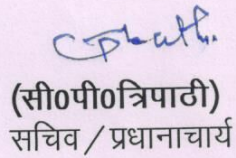 (सी0पी0त्रिपाठी)
सचिव / प्रधानाचार्य